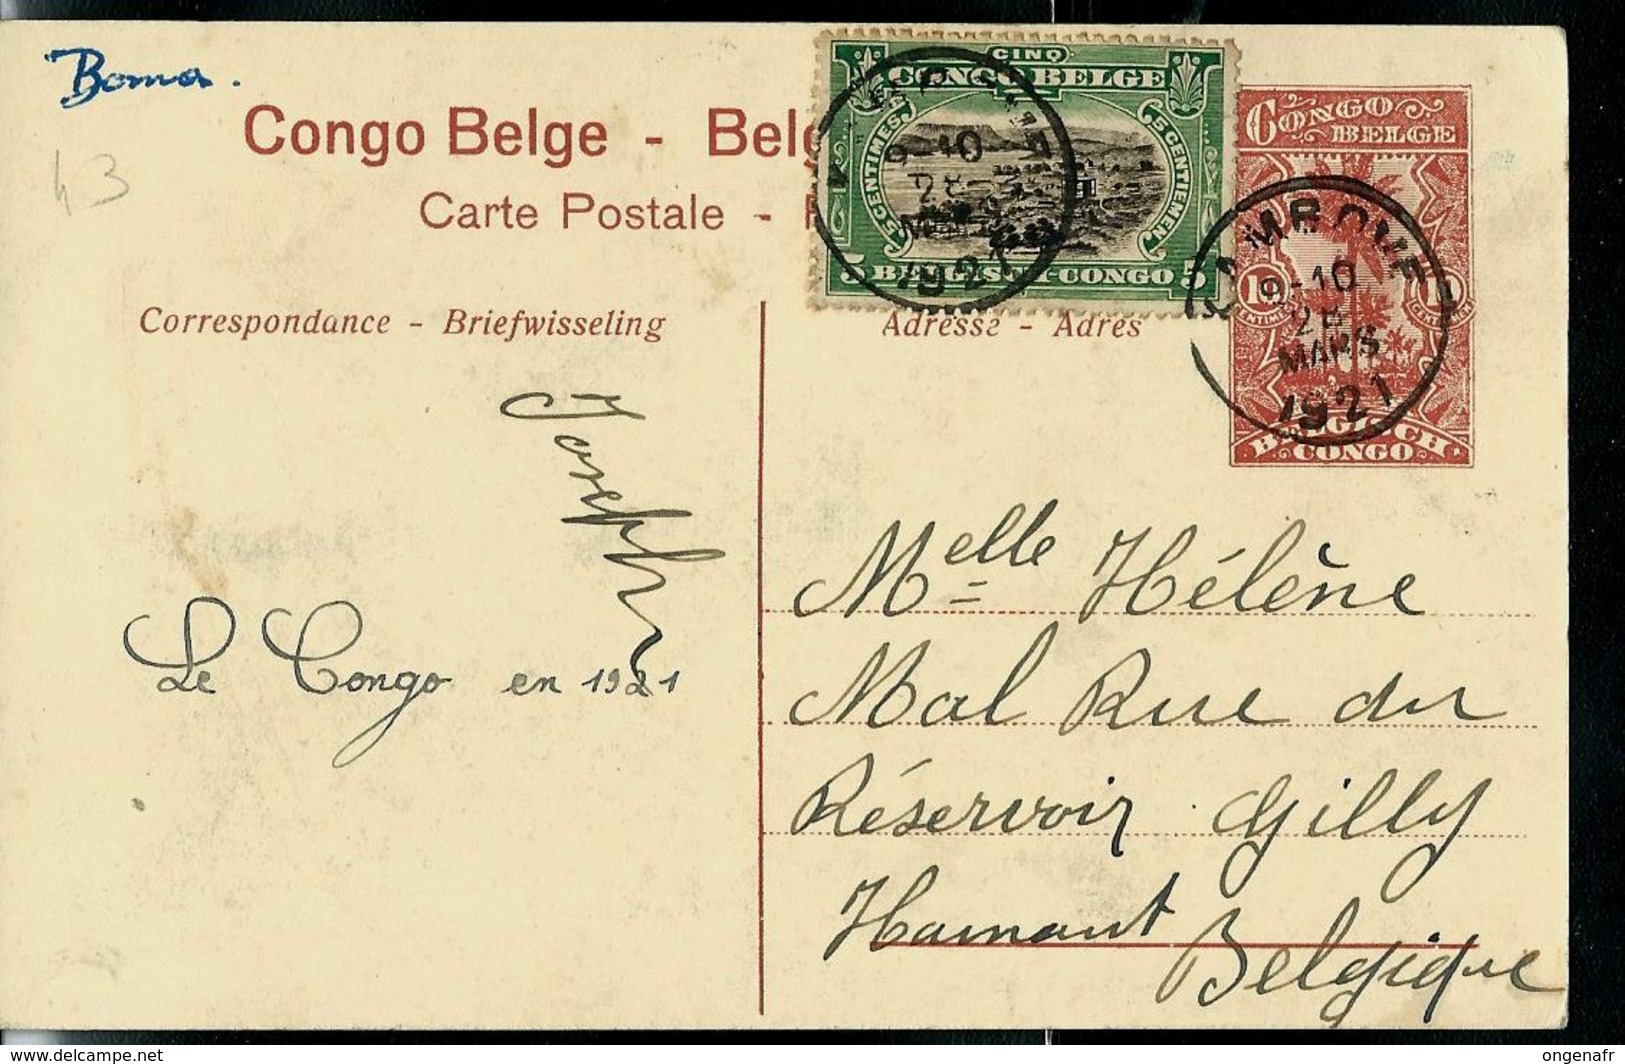 Boma.
43
Congo Belge - Belg
Carte Postale -
CINQ
CONGO BELGE
5 CENTIMES
5 CENTIEMEN.
5 BELGISCH-CONGO 5
9-10
28
MARS
1921
CONGO
BELGE
BELGISCH
CONGO
9-10
28
MARS
1921
Correspondance - Briefwisseling
Adresse - Adres
Joseph
Le Congo en 1921
Melle Hélène
Mal Rue du
Réservoir Gilly
Hamaut
Belgique
delcampe.net
ongenafr